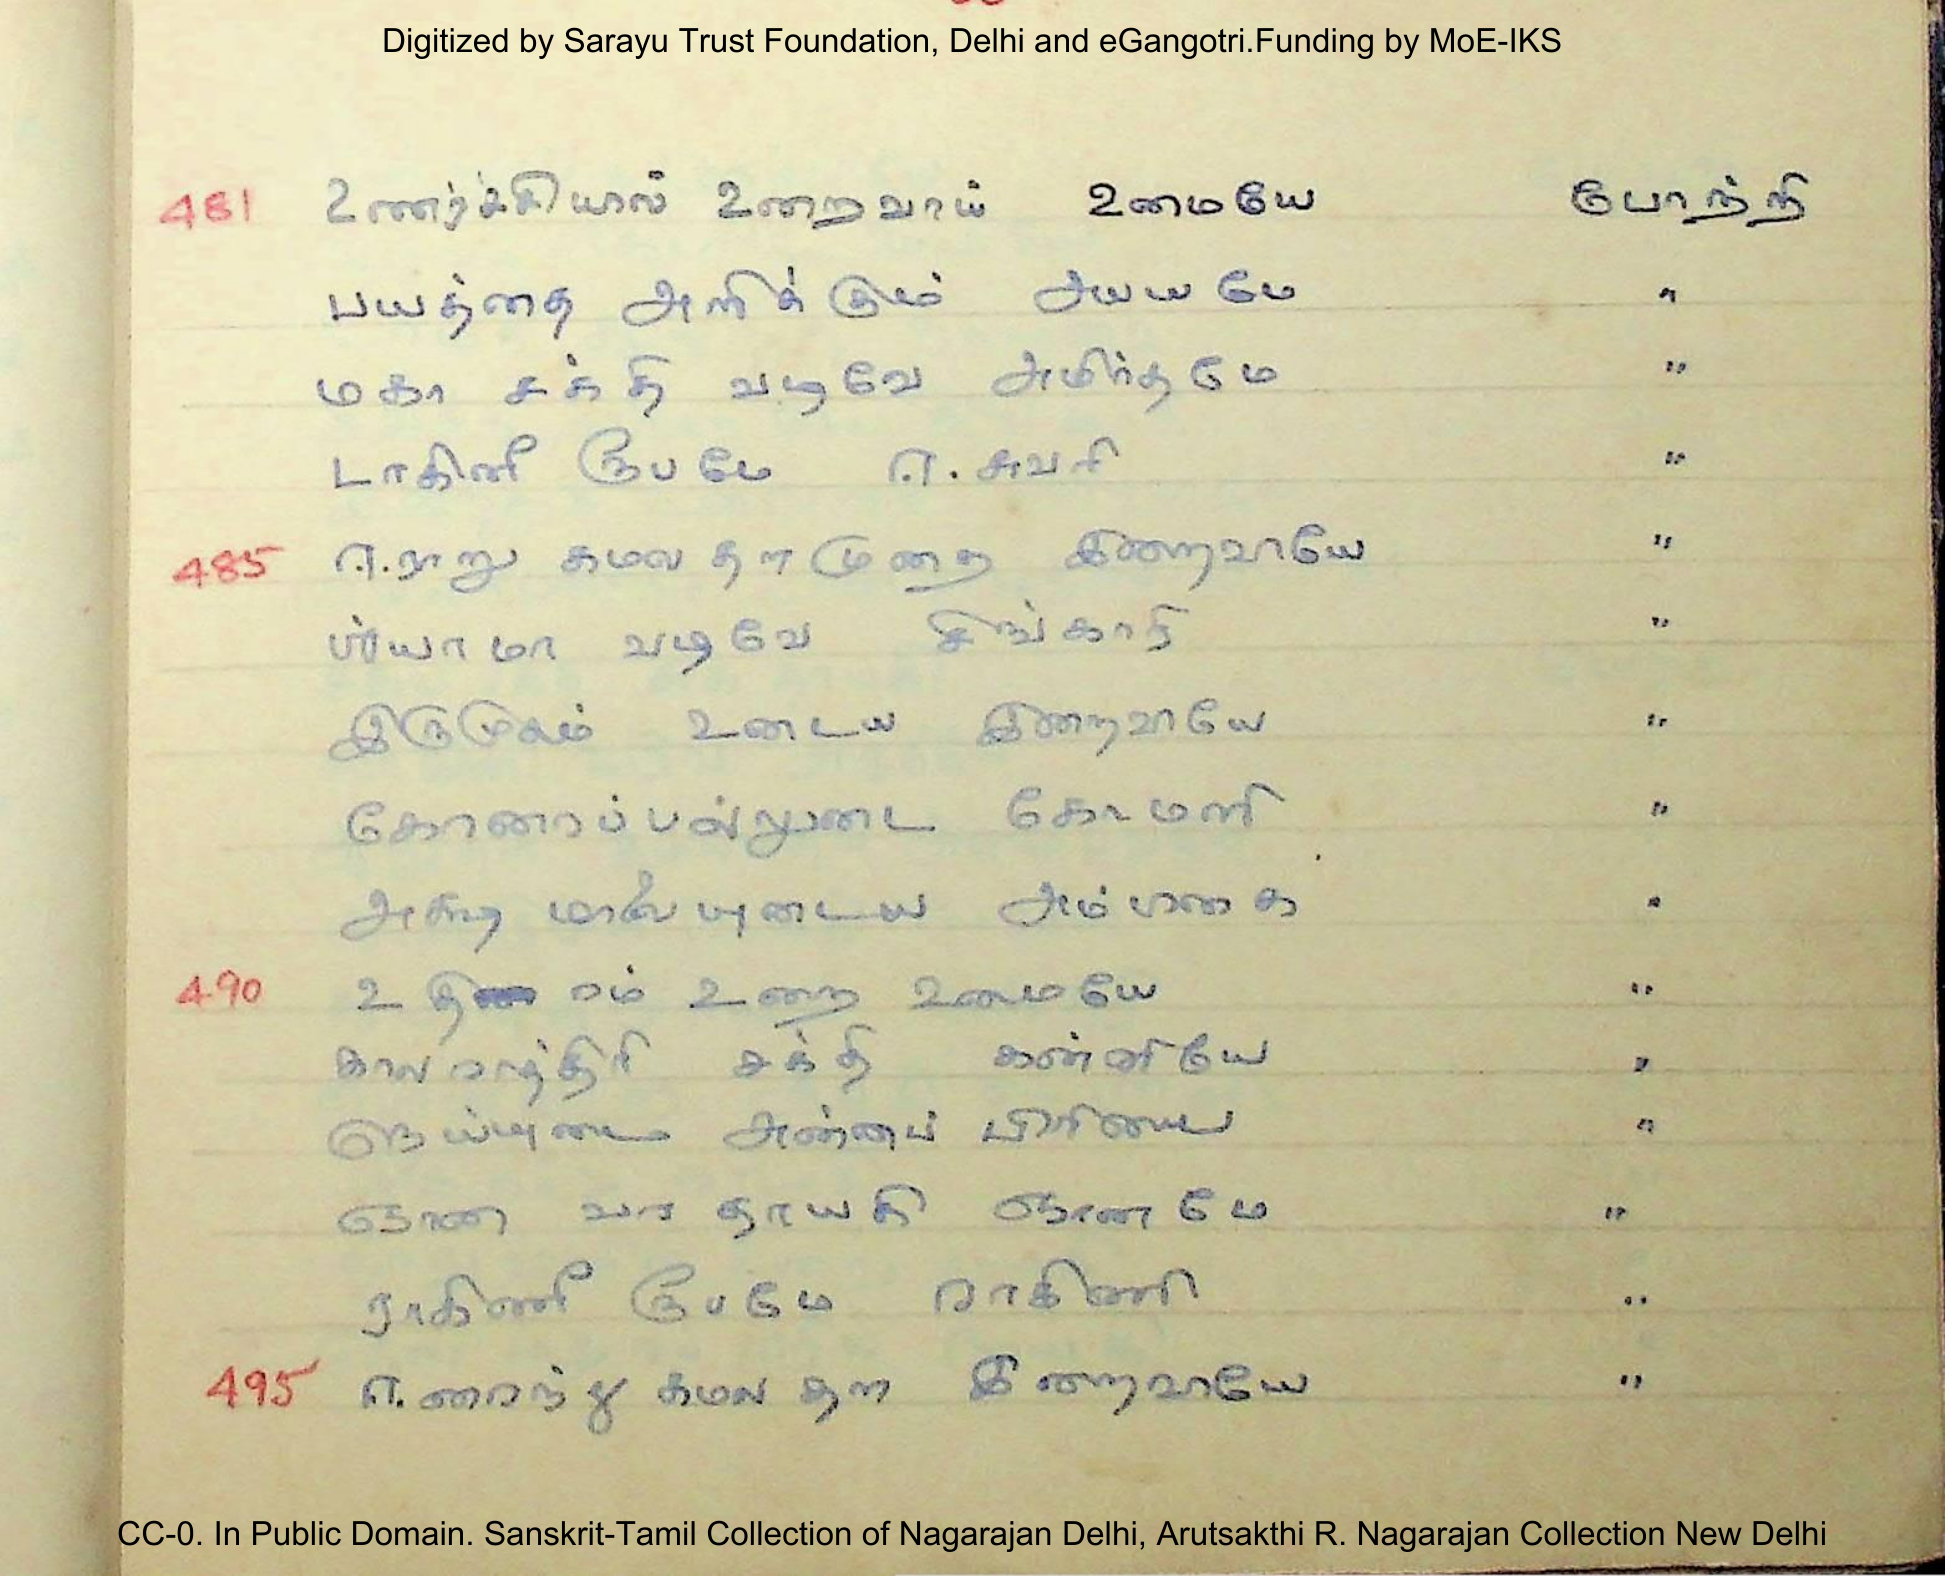 Digitized by Sarayu Trust Foundation, Delhi and eGangotri.Funding by MoE-IKS
481 உணர்ச்சியால் உறைவாய் உமையே போற்றி
பயத்தை அளிக்கும் அபயமே "
மகா சக்தி வடிவே அமிர்தமே "
டாகினீ ரூபமே ஈசுவரி "
485 ஈராறு கமல தளமுறை இறைவாயே "
ஶ்யாமா வடிவே சிங்காரி "
இருமுகம் உடைய இறைவாயே "
கோரைப்பல்லுடை கோமளி "
அக்ஷ மாலையுடைய அம்பிகை "
490 உதிரம் உறை உமையே "
காலராத்திரி சக்தி கன்னியே "
நெய்யுடை அன்னப் பிரியை "
ஞான வர தாயகி ஞானமே "
ராகிணீ ரூபமே ராகிணி "
495 ஈரைந்து கமல தள இறைவாயே "
CC-0. In Public Domain. Sanskrit-Tamil Collection of Nagarajan Delhi, Arutsakthi R. Nagarajan Collection New Delhi